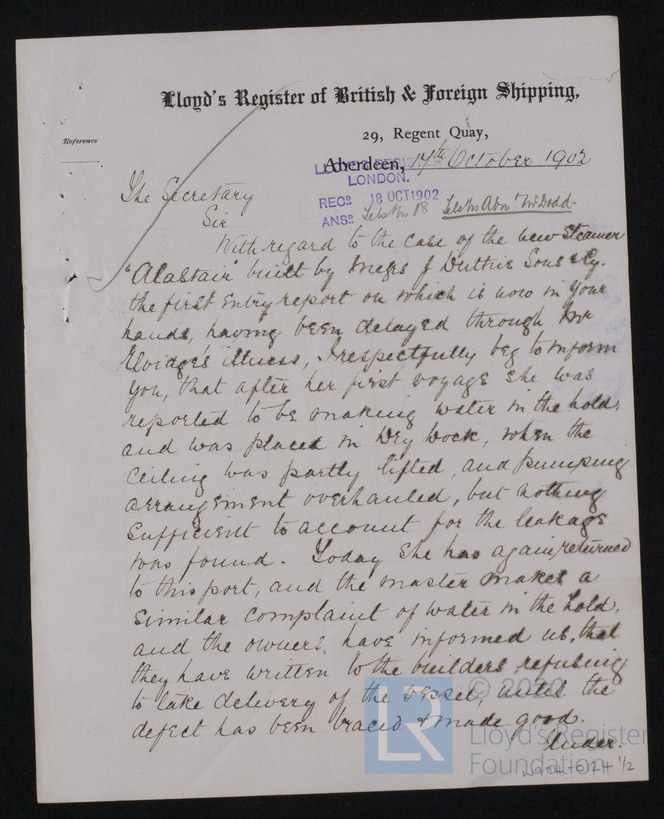 Lloyd's Register of British & Foreign Shipping,
Reference
29, Regent Quay,
Aberdeen, 17th October 1902
LLOYD'S REGISTER
LONDON.
RECD. 18 OCT 1902
ANSD.
The Secretary
Sir
With regard to the case of the new Steamer
"Alastair" built by Messrs J Duthie Sons & Cy.
the first Entry report on which is now in your
hands, having been delayed through Mr
Elvidge's illness, I respectfully beg to inform
you, that after her first voyage she was
reported to be making water in the hold,
and was placed in Dry Dock, when the
ceiling was partly lifted, and pumping
arrangement overhauled, but nothing
sufficient to account for the leakage
was found. Today she has again returned
to this port, and the master makes a
similar complaint of water in the hold,
and the owners have informed us, that
they have written to the builders refusing
to take delivery of the vessel, until the
defect has been traced & made good.
Under.
LR
© 2020
Lloyd's Register
Foundation
1/2